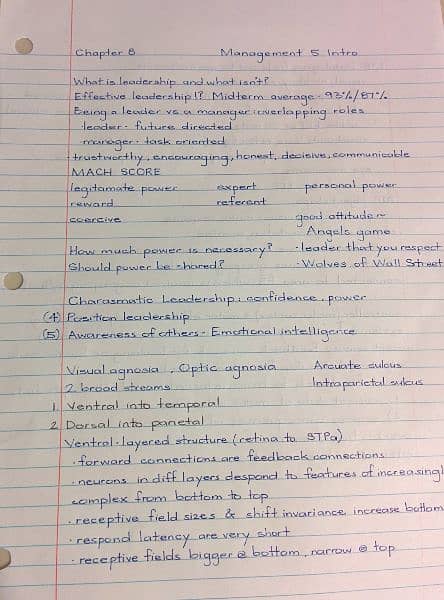 Chapter 8 Management 5 Intro
What is leadership and what isn't?
Effective leadership!? Midterm average - 93%/87%
Being a leader vs a manager: overlapping roles
leader - future directed
manager - task oriented
- trustworthy, encouraging, honest, decisive, communicable
MACH SCORE
legitamate power expert personal power
reward referent
coercive good attitude ~
Angels game
How much power is necessary? - leader that you respect
Should power be shared? - Wolves of Wall Street
Charasmatic Leadership: confidence, power
(4) Position leadership
(5) Awareness of others - Emotional intelligence
Visual agnosia, Optic agnosia Arcuate sulcus
2 broad streams Intraparietal sulcus
1. Ventral into temporal
2. Dorsal into parietal
Ventral - layered structure (retina to STPa)
- forward connections are feedback connections
- neurons in diff layers despond to features of increasingl
complex from bottom to top
- receptive field sizes & shift invariance increase bottom
- respond latency are very short
- receptive fields bigger @ bottom, narrow @ top